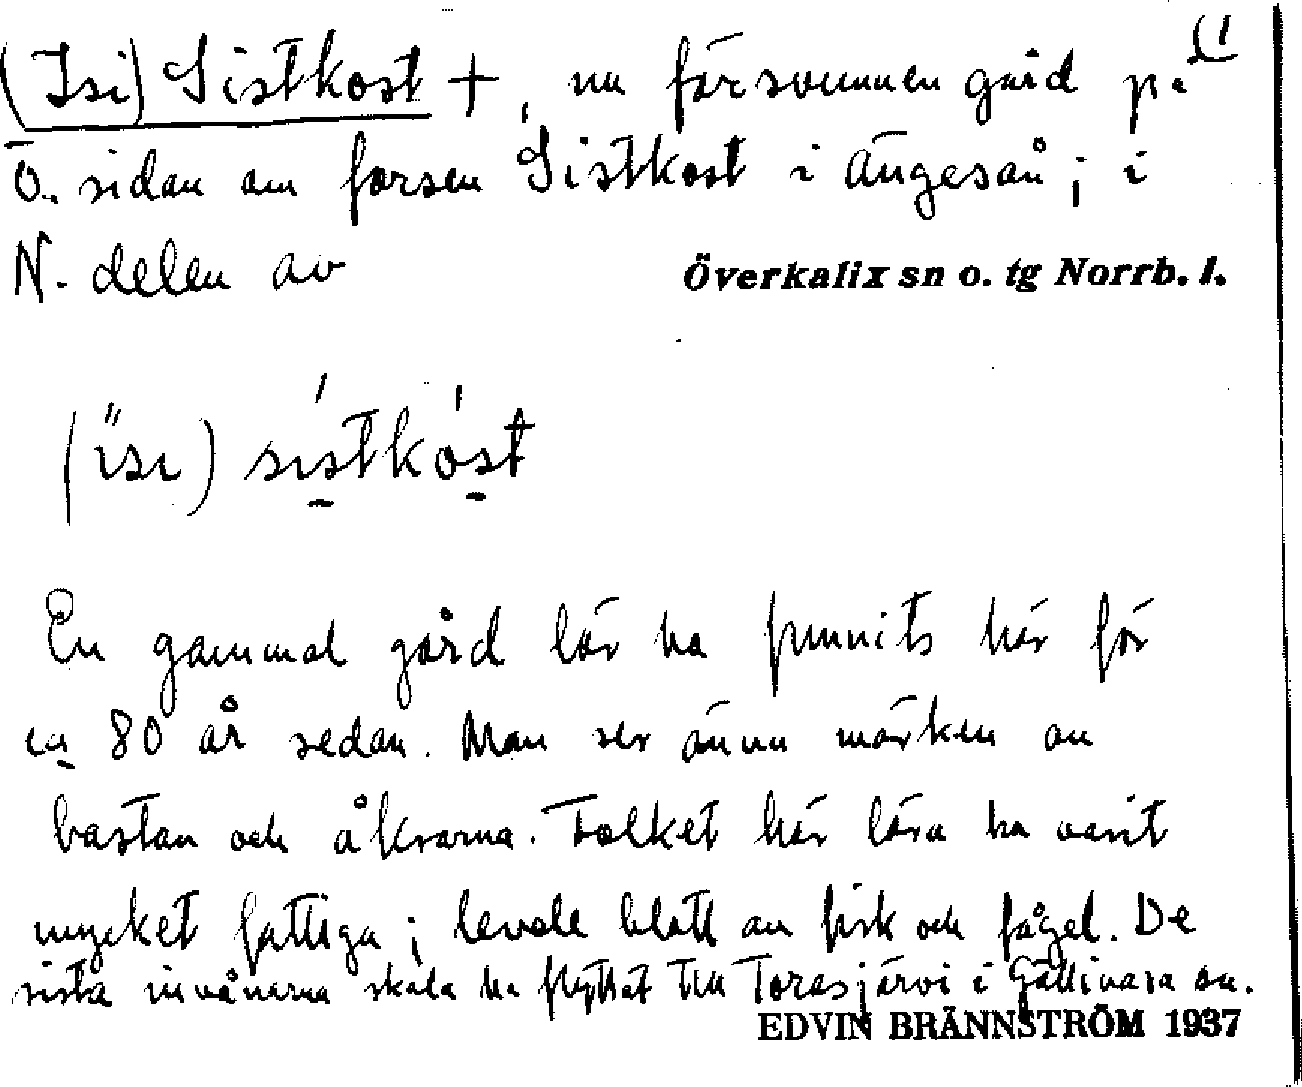 (Isi) Sistkost +, nu försvunnen gård på (1
Ö. sidan om forsen Sistkost i Ängesån; i
N. delen av Överkalix sn o. tg Norrb. l.
(ïsı) sıstkost
En gammal gård lär ha funnits här för
ca 80 år sedan. Man ser ännu märken av
bastan och åkrarna. Folket här lära ha varit
mycket fattiga; levde blott av fisk och fågel. De
sista invånarna skola ha flyttat till Torasjärvi i Gällivara sn.
EDVIN BRÄNNSTRÖM 1937